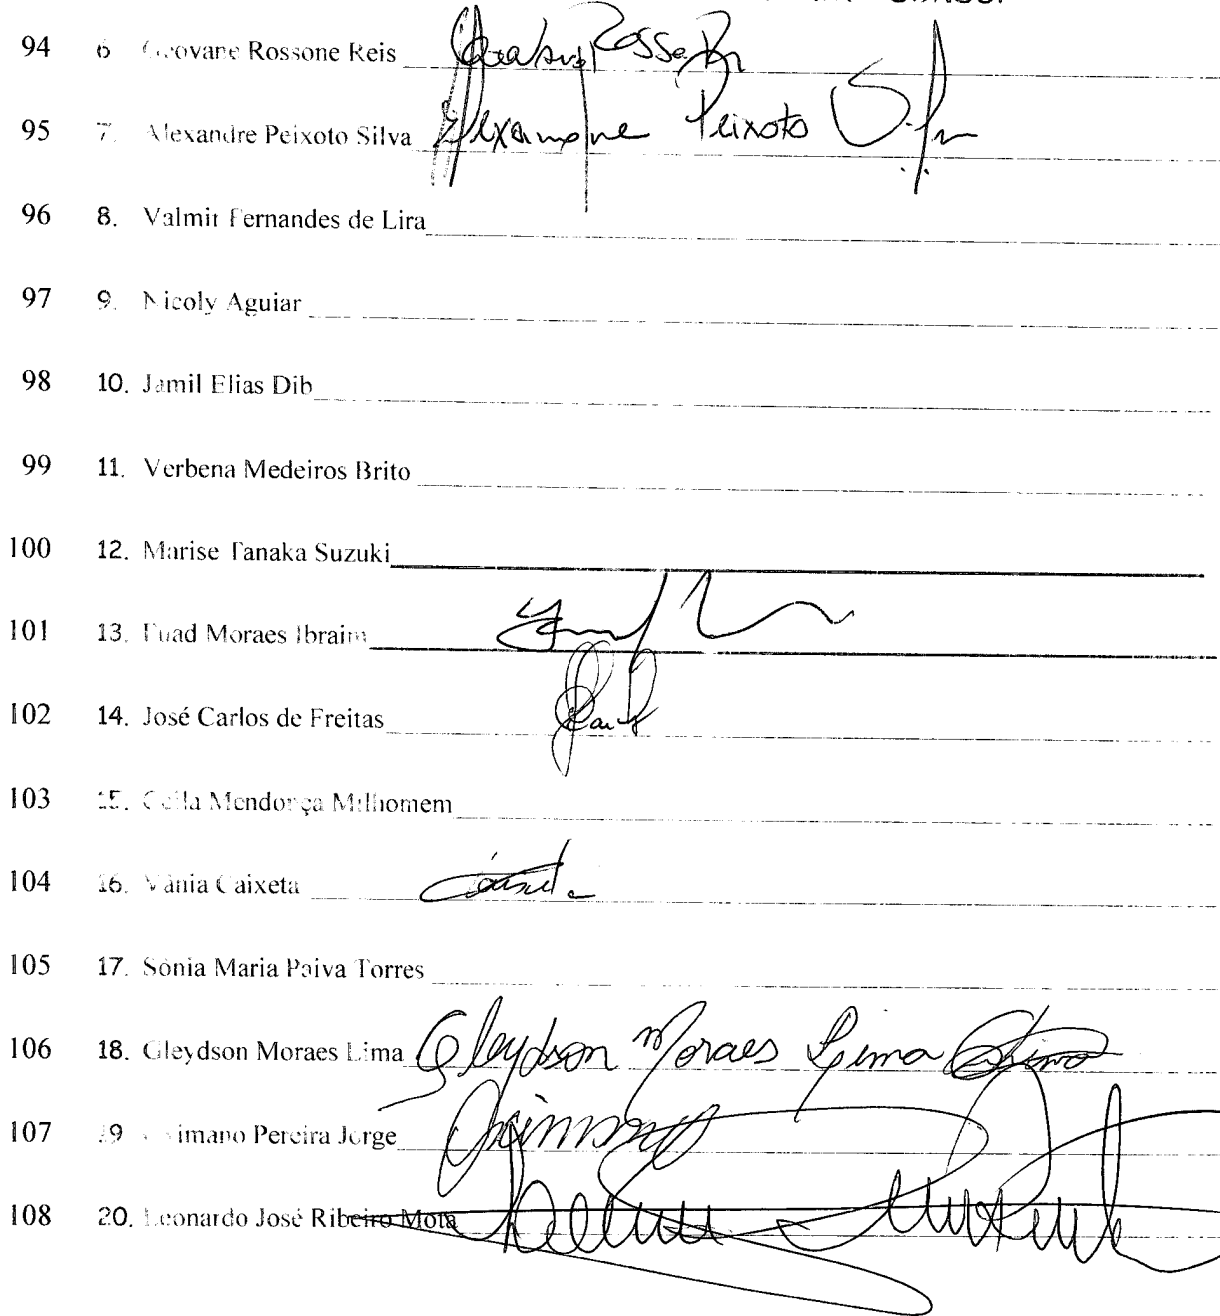 94 6 Geovane Rossone Reis
95 7. Alexandre Peixoto Silva Alexandre Peixoto
96 8. Valmir Fernandes de Lira
97 9. Nicoly Aguiar
98 10. Jamil Elias Dib
99 11. Verbena Medeiros Brito
100 12. Marise Tanaka Suzuki
101 13. Fuad Moraes Ibraim
102 14. José Carlos de Freitas
103 15. Mendonça Milhomem
104 16. Vânia Caixeta
105 17. Sônia Maria Paiva Torres
106 18. Gleydson Moraes Lima Gleydson Moraes Lima
107 19 Pereira Jorge
108 20. Leonardo José Ribeiro Mota